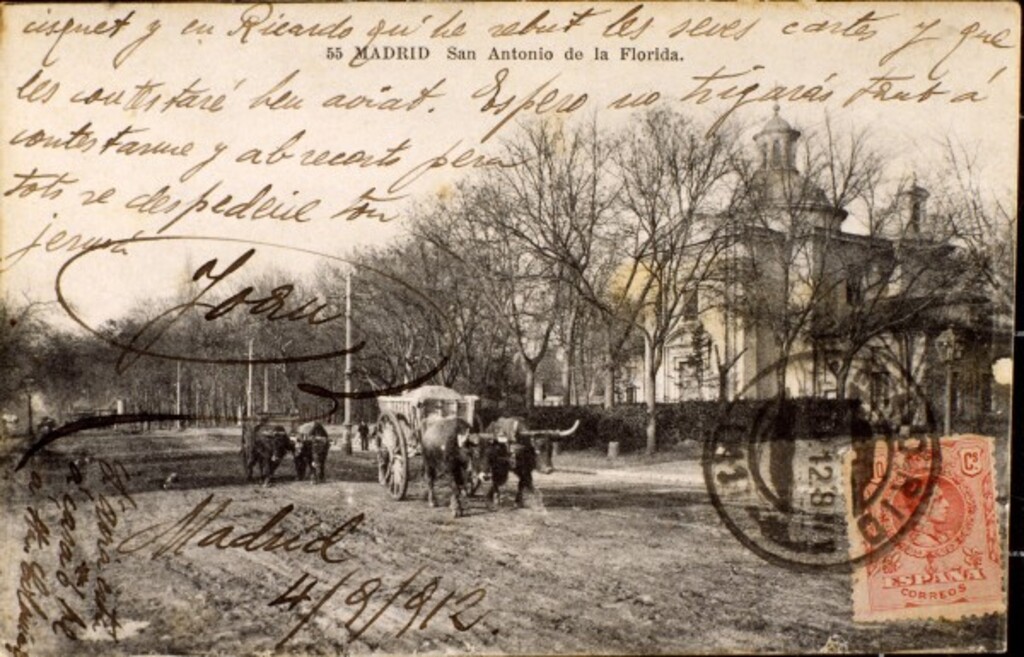 cisquet y en Ricardo qui he rebut les seves cartes y que
55 MADRID San Antonio de la Florida.
les contestaré ben aviat. Espero no trigarás tant á
contestarme y ab recorts pera
tots se despedeix ton
jermá
Joan
Madrid
4/9/912.
12.9
MADRID
Cs
ESPAÑA
CORREOS